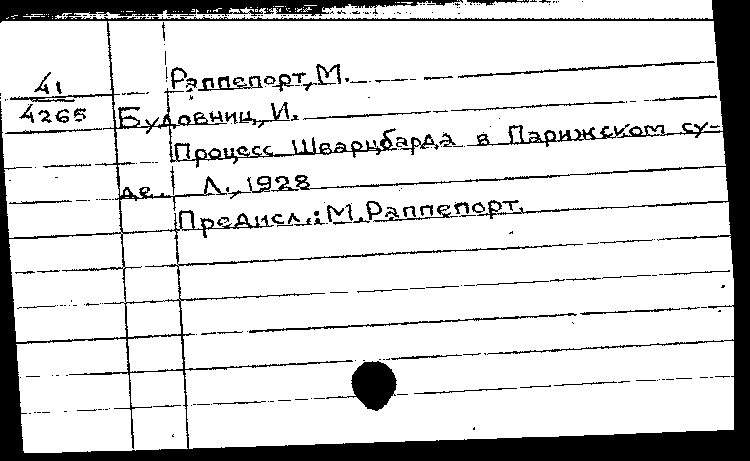 Раппепорт, М.
41
4265
Будовниц, И.
Процесс Шварцбарда в Парижском су-
де. Л., 1928
Предисл.: М. Раппепорт.